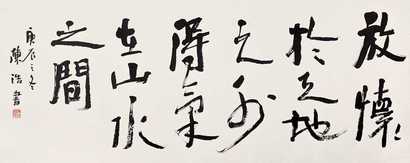 放懷
於天地
之外
得氣
在山水
之間
庚辰之冬
陳浩書